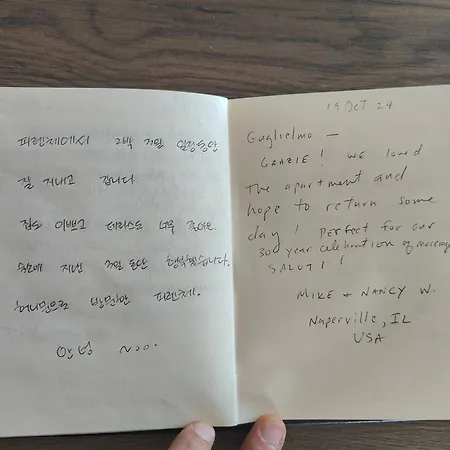 피렌체에서 2박 3일 일정동안
잘 지내고 갑니다
집도 이쁘고 테라스도 너무 좋아요.
숙소에 지낸 3일 동안 행복했습니다.
허니문으로 방문한 피렌체.
안녕 ~ooo.
19 OCT 24
Guglielmo —
GRAZIE! WE loved
The apartment and
hope to return some
day! Perfect for our
30 year celebration of marriage
SALUTI!
MIKE + NANCY W.
Naperville, IL
USA